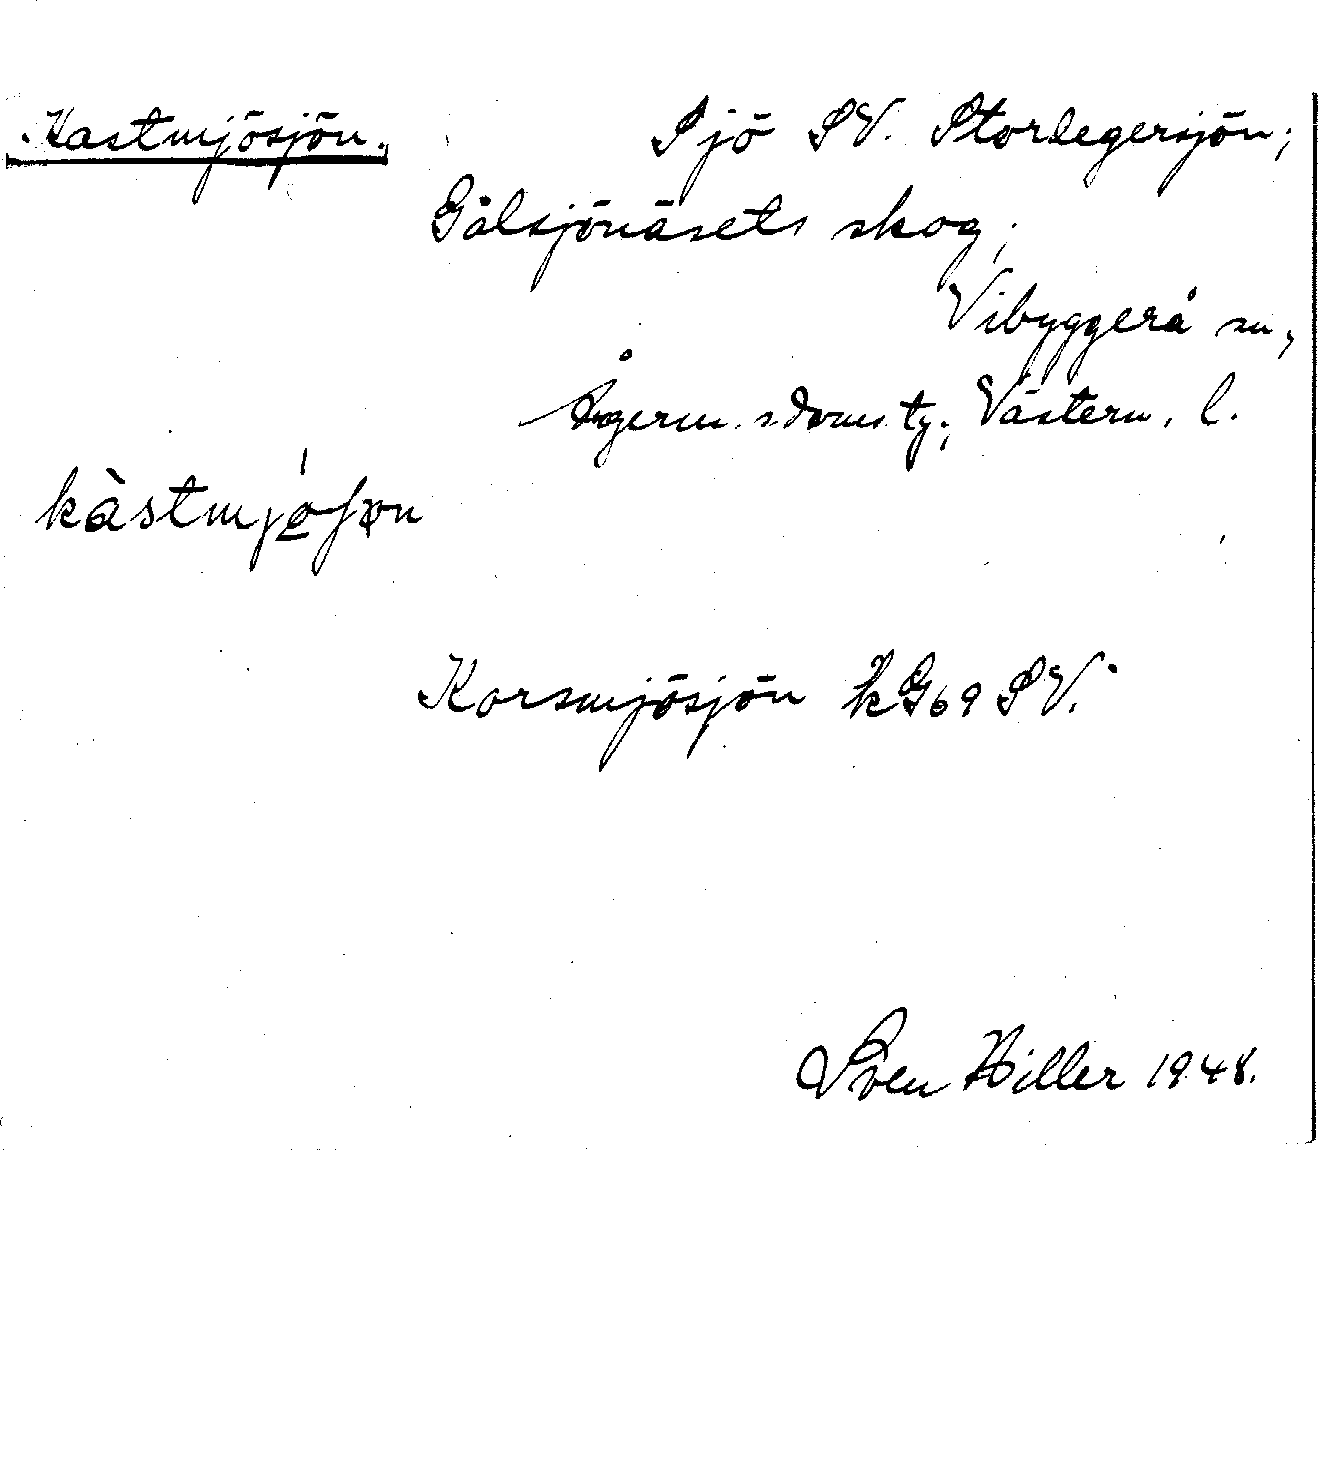 Kastmjösjön. Sjö SV. Storlegersjön;
Gålsjönäsets skog;
Vibyggerå sn,
Ångerm. s domsty; Västern. l.
kàstmjo̲ʃøn
Korsmjösjön kG69 SV.
Sven Hiller 1948.